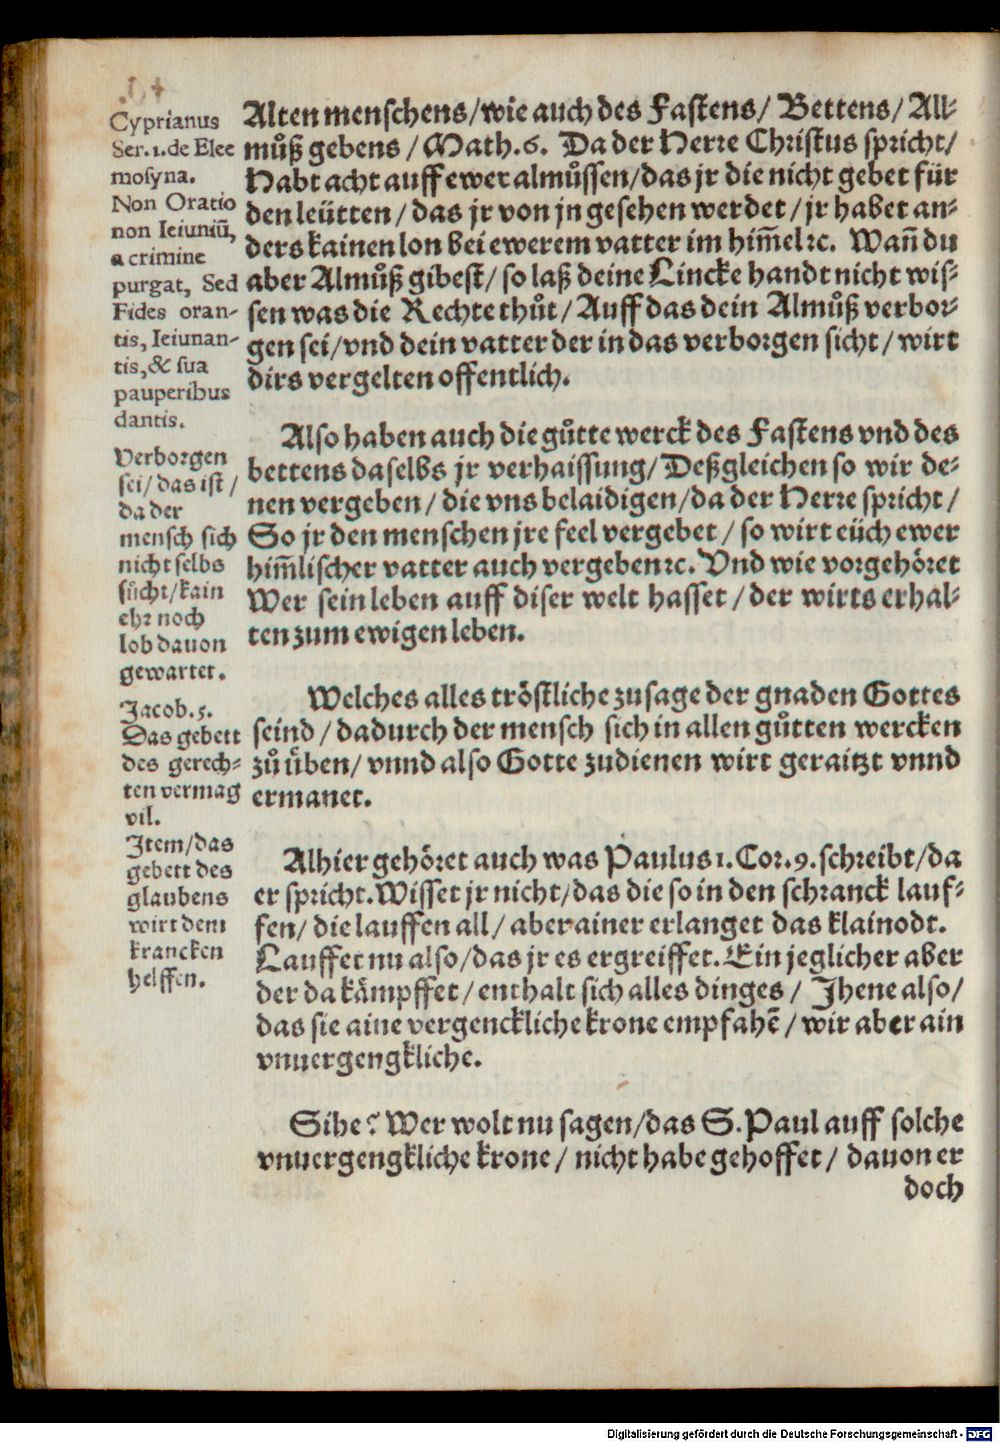 Cyprianus
Ser. 1. de Elee
mosyna.
Non Oratio
non Ieiuniū,
a crimine
purgat, Sed
Fides oran-
tis, Ieiunan-
tis, & sua
pauperibus
dantis.
Verborgen
sei / das ist /
da der
mensch sich
nicht selbs
sůcht / kain
ehr noch
lob dauon
gewartet.
Jacob. 5.
Das gebett
des gerech-
ten vermag
vil.
Item / das
gebett des
glaubens
wirt dem
krancken
helffen.
Alten menschens / wie auch des Fastens / Bettens / All-
můß gebens / Math. 6. Da der Herre Christus spricht /
Habt acht auff ewer almůssen / das jr die nicht gebet für
den leütten / das jr von jn gesehen werdet / jr habet an-
ders kainen lon bei ewerem vatter im him̄el ꝛc. Wan̄ du
aber Almůß gibest / so laß deine Lincke handt nicht wis-
sen was die Rechte thůt / Auff das dein Almůß verbor-
gen sei / vnd dein vatter der in das verborgen sicht / wirt
dirs vergelten offentlich.
Also haben auch die gůtte werck des Fastens vnd des
bettens daselbs jr verhaissung / Deßgleichen so wir de-
nen vergeben / die vns belaidigen / da der Herre spricht /
So jr den menschen jre feel vergebet / so wirt eüch ewer
him̄lischer vatter auch vergeben ꝛc. Vnd wie vorgehöret
Wer sein leben auff diser welt hasset / der wirts erhal-
ten zum ewigen leben.
Welches alles tröstliche zusage der gnaden Gottes
seind / dadurch der mensch sich in allen gůtten wercken
zů üben / vnnd also Gotte zudienen wirt geraitzt vnnd
ermanet.
Alhier gehöret auch was Paulus 1. Cor. 9. schreibt / da
er spricht. Wisset jr nicht / das die so in den schranck lauf-
fen / die lauffen all / aber ainer erlanget das klainodt.
Lauffet nu also / das jr es ergreiffet. Ein jeglicher aber
der da kämpffet / enthalt sich alles dinges / Jhene also /
das sie aine vergenckliche krone empfahē / wir aber ain
vnuergengkliche.
Sihe? Wer wolt nu sagen / das S. Paul auff solche
vnuergengkliche krone / nicht habe gehoffet / dauon er
doch
Digitalisierung gefördert durch die Deutsche Forschungsgemeinschaft - DFG